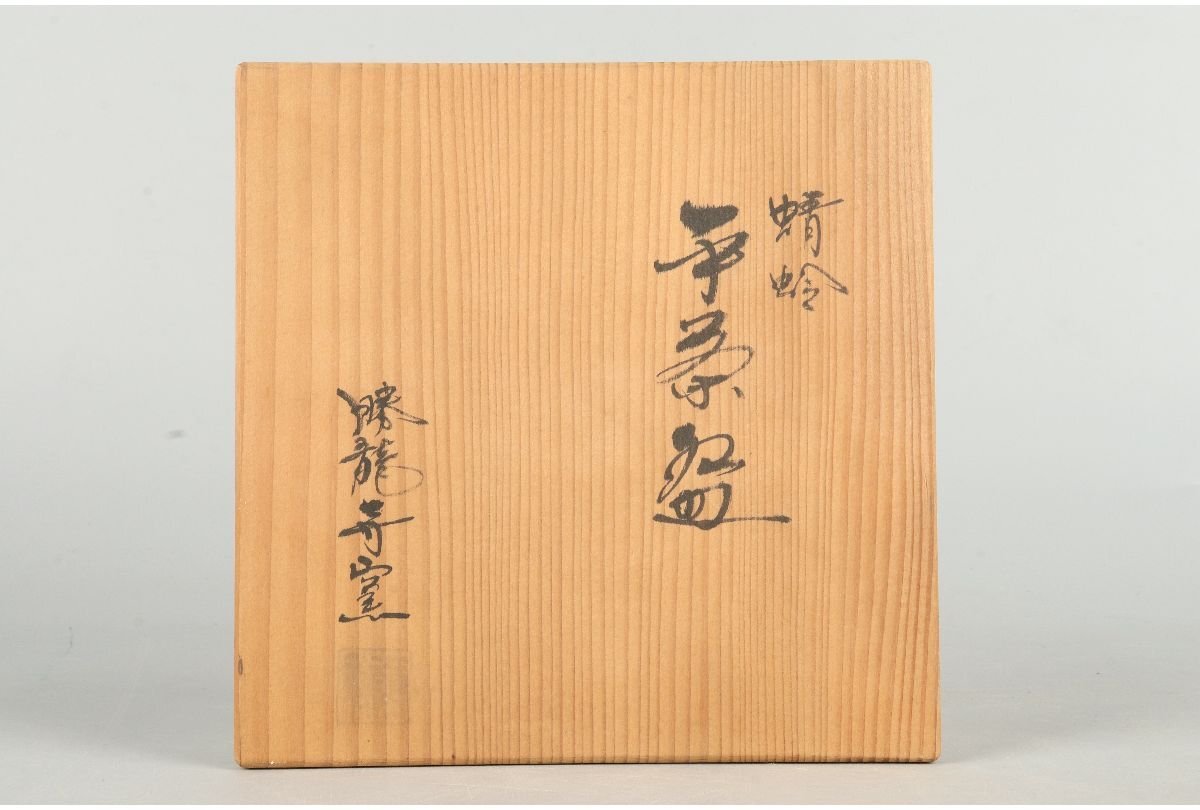 蜻蛉
平茶盌
勝龍寺窯